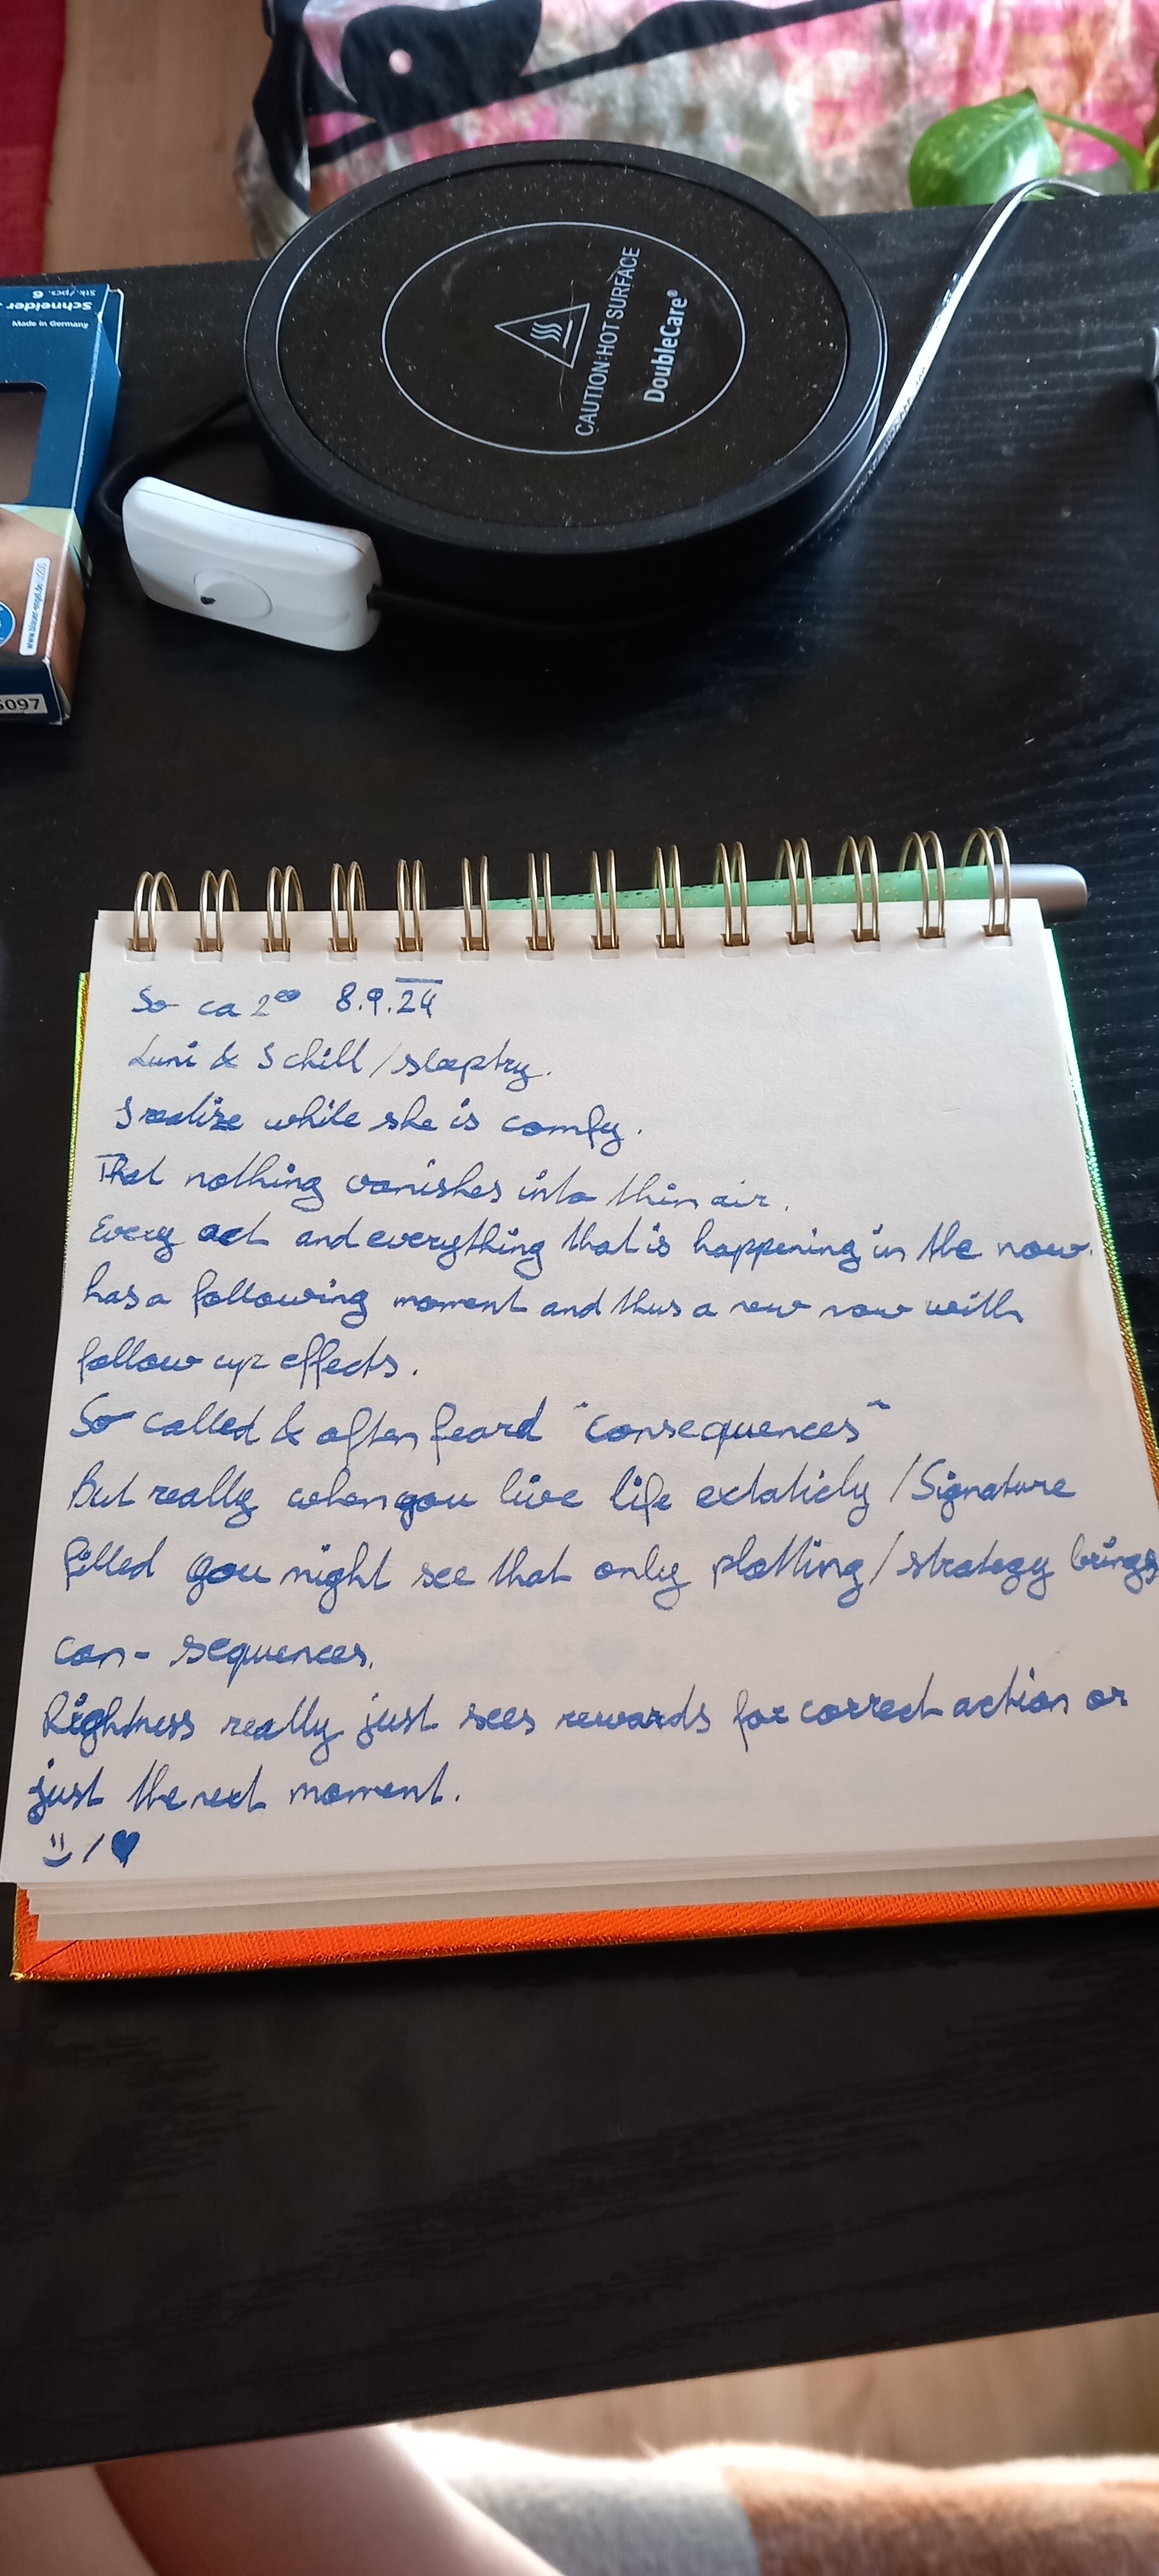 Schneider
Stk./pcs. 6
Made in Germany
6097
CAUTION: HOT SURFACE
DoubleCare®
So ca 2⁰⁰ 8.9.24
Luni & I chill / sleeptry.
I realize while she is comfy.
That nothing vanishes into thin air.
Every act and everything that is happening in the now.
has a following moment and thus a new now with
follow up effects.
So called & often feard "consequences"
But really when you live life extaticly / Signature
filled you might see that only plotting / strategy brings
con- sequences.
Rightness really just sees rewards for correct action or
just the next moment.